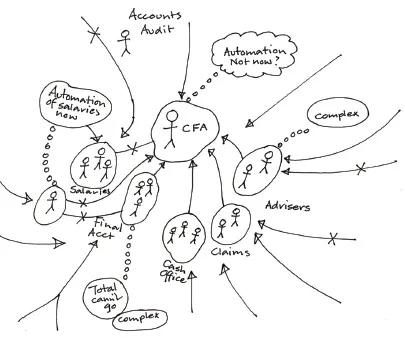 Accounts
Audit
Automation
Not now?
Automation
of salaries
now
CFA
complex
Salaries
Final
Acct
Advisers
Claims
Cash
Office
Total
can't
go
complex